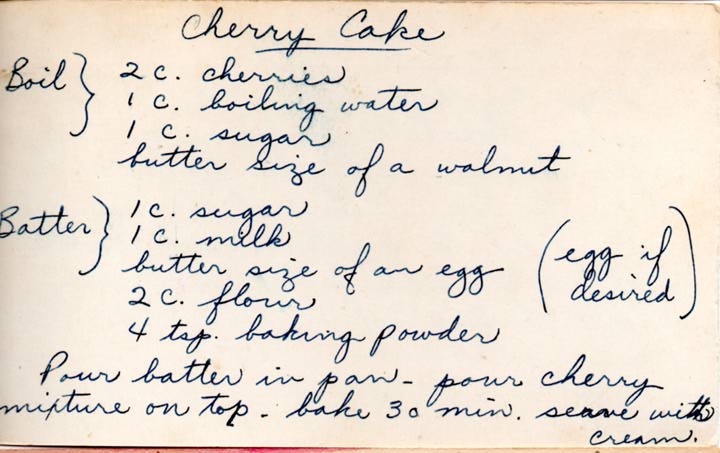 Cherry Cake
Boil } 2 c. cherries
1 c. boiling water
1 c. sugar
butter size of a walnut
Batter } 1 c. sugar
1 c. milk
butter size of an egg (egg if desired)
2 c. flour
4 tsp. baking powder
Pour batter in pan - pour cherry
mixture on top - bake 30 min. serve with
cream.